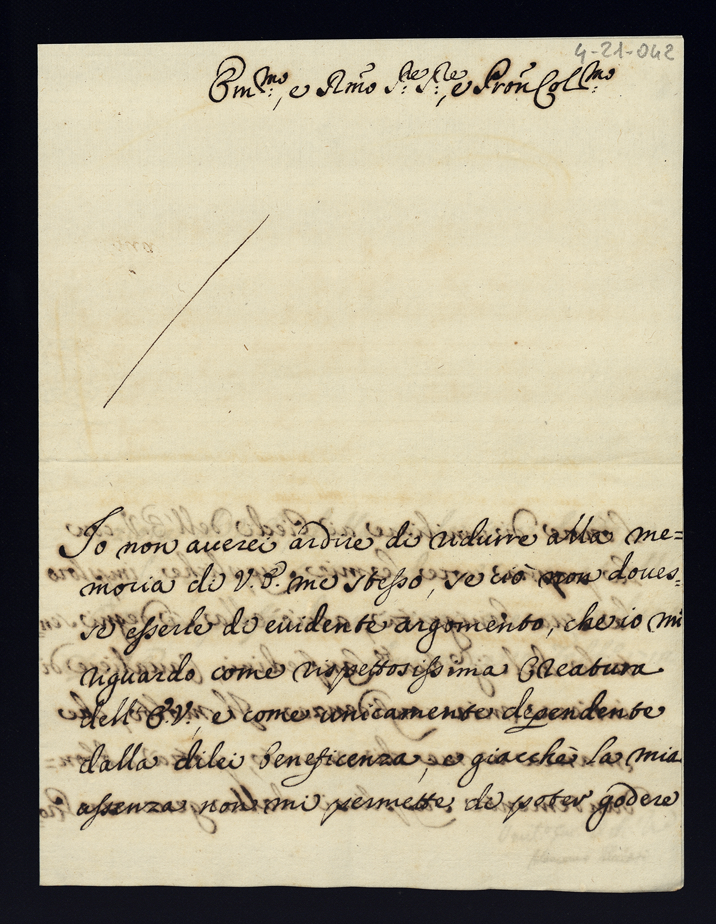 4-21-042
Em:mo, e Rmo Sre: Sre:, e Pron Col:mo
Io non averei ardire di ridurre alla me=
moria di V. E. me stesso, se ciò non doves=
se esserle di evidente argomento, che io mi
riguardo come rispettosissima Creatura
dell'E.V., e come unicamente dependente
dalla dilei beneficenza, e giacchè la mia
assenza non mi permette, de poter godere